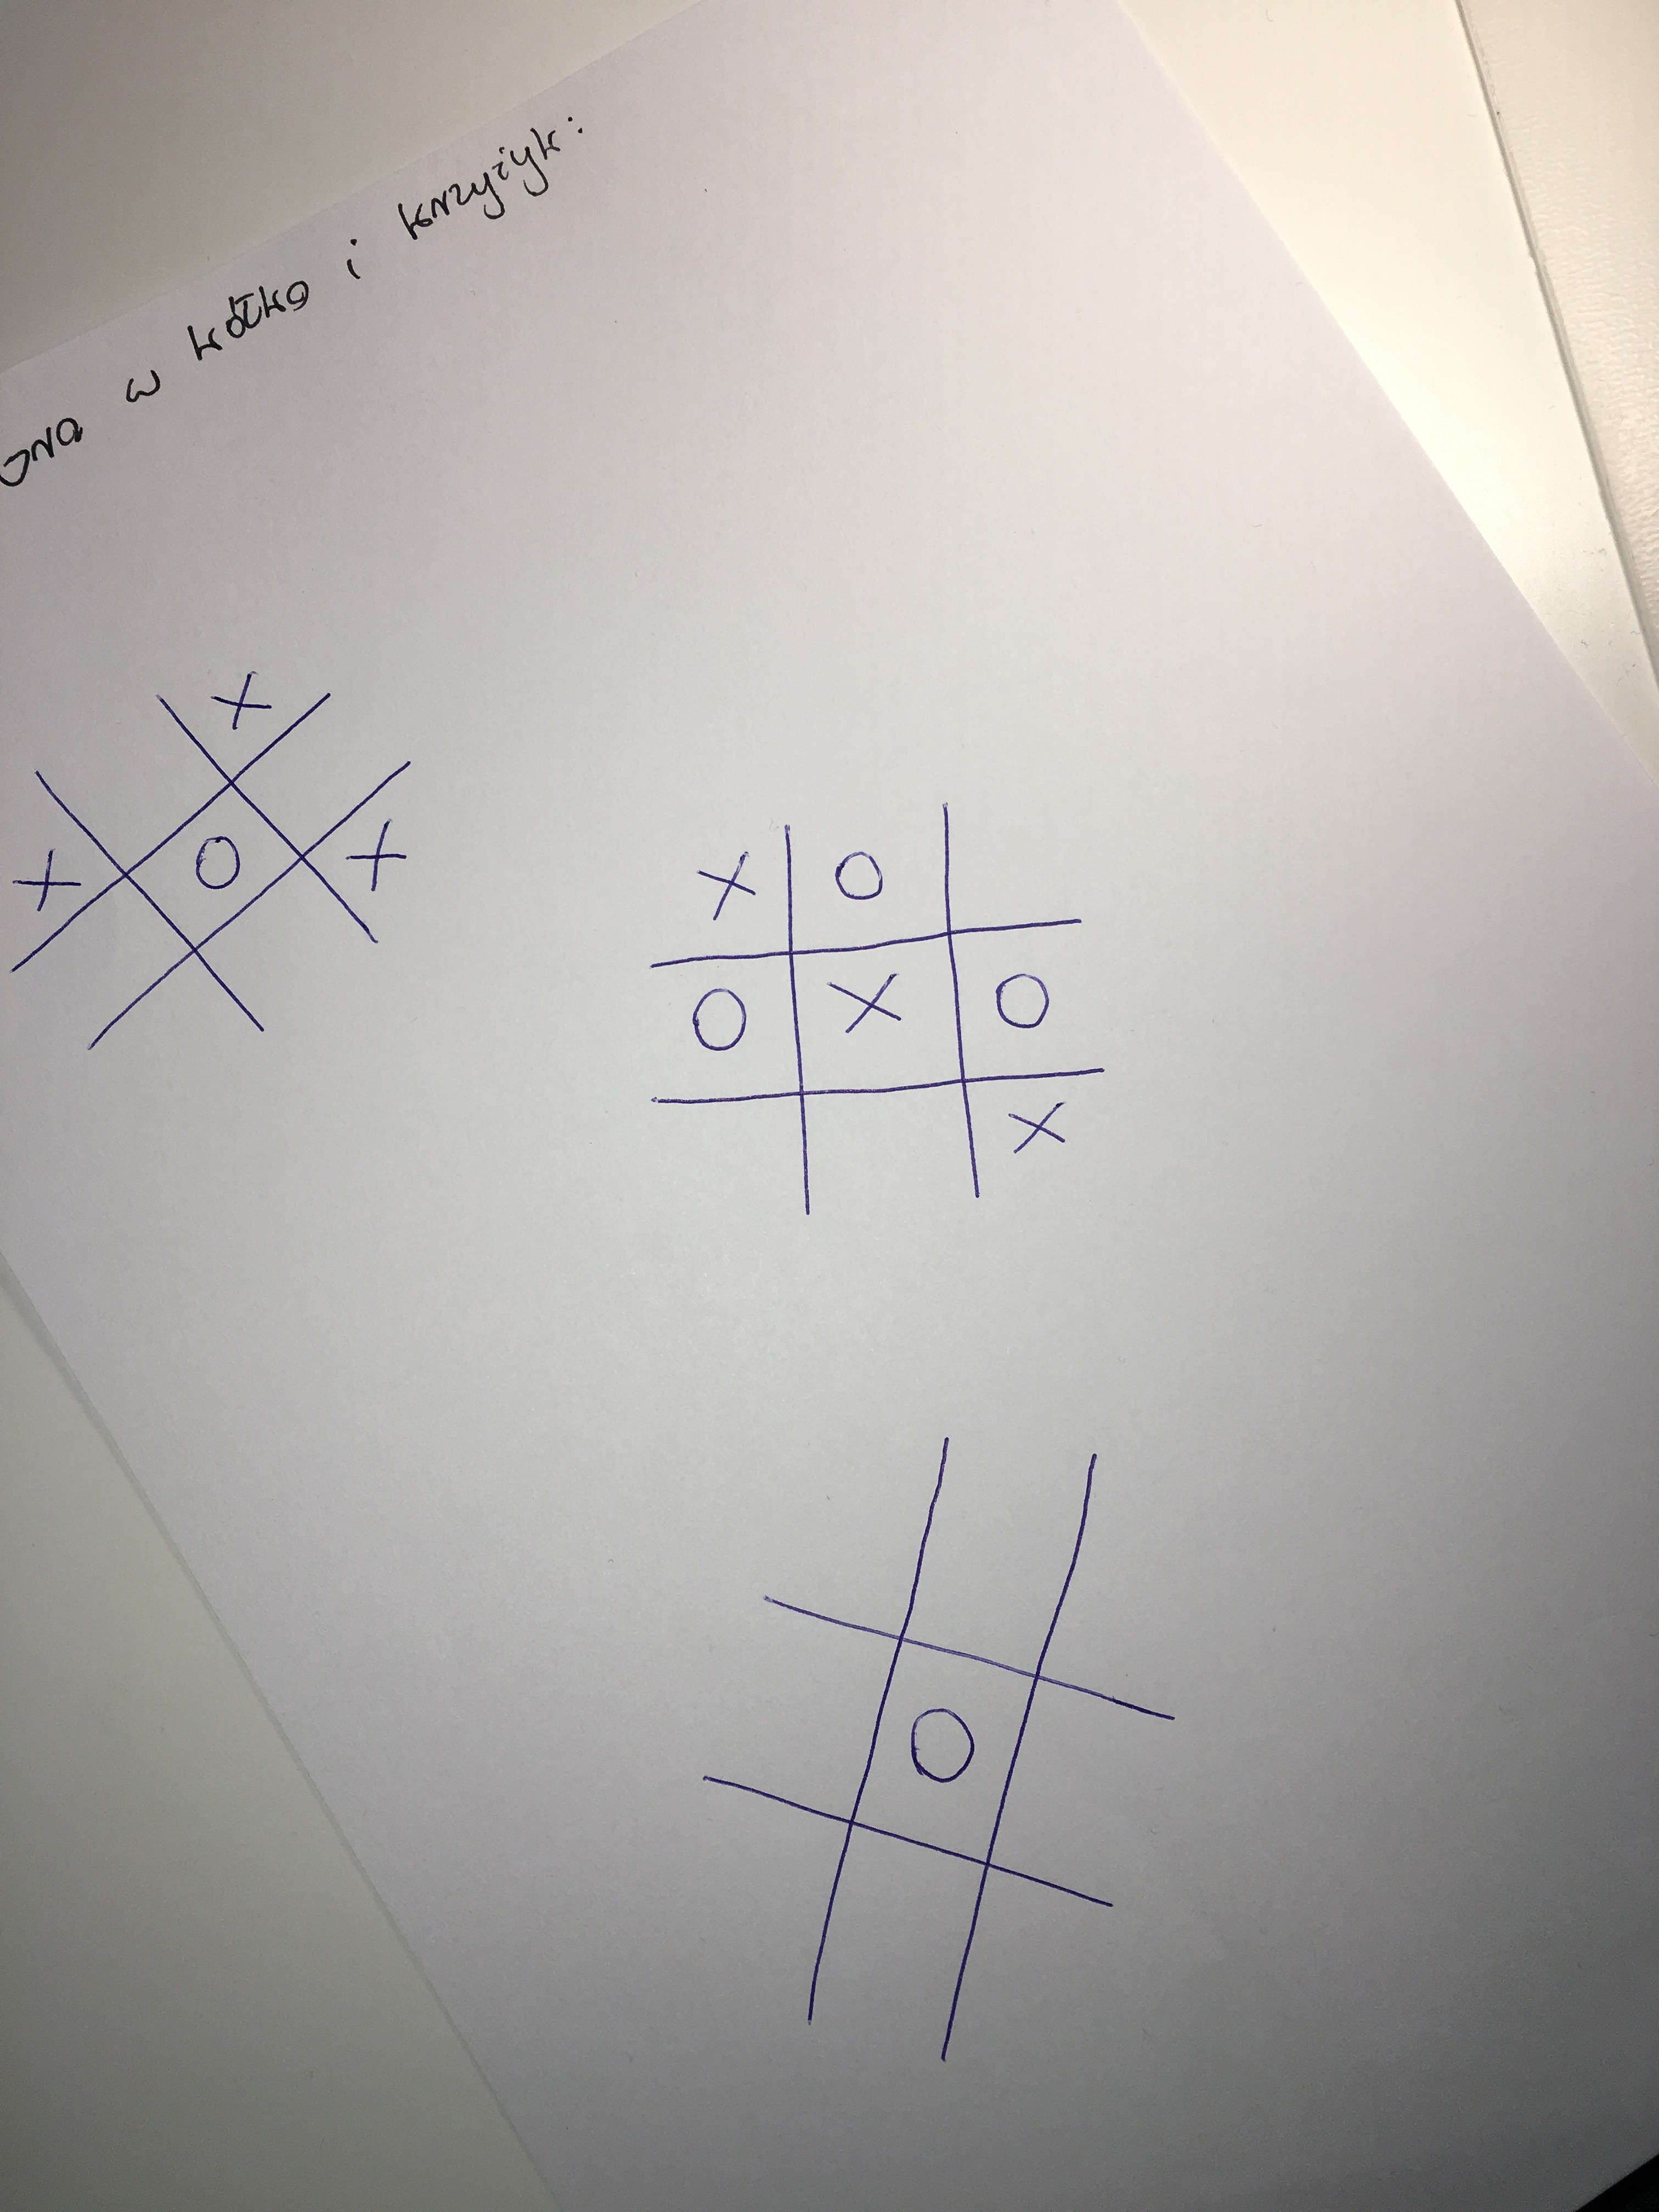 Gra w kółko i krzyżyk:
X
X O X
X O
O X O
X
O